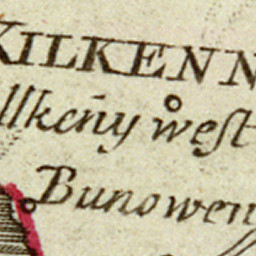 KILKENN
llkeñy weſt
Bunowen